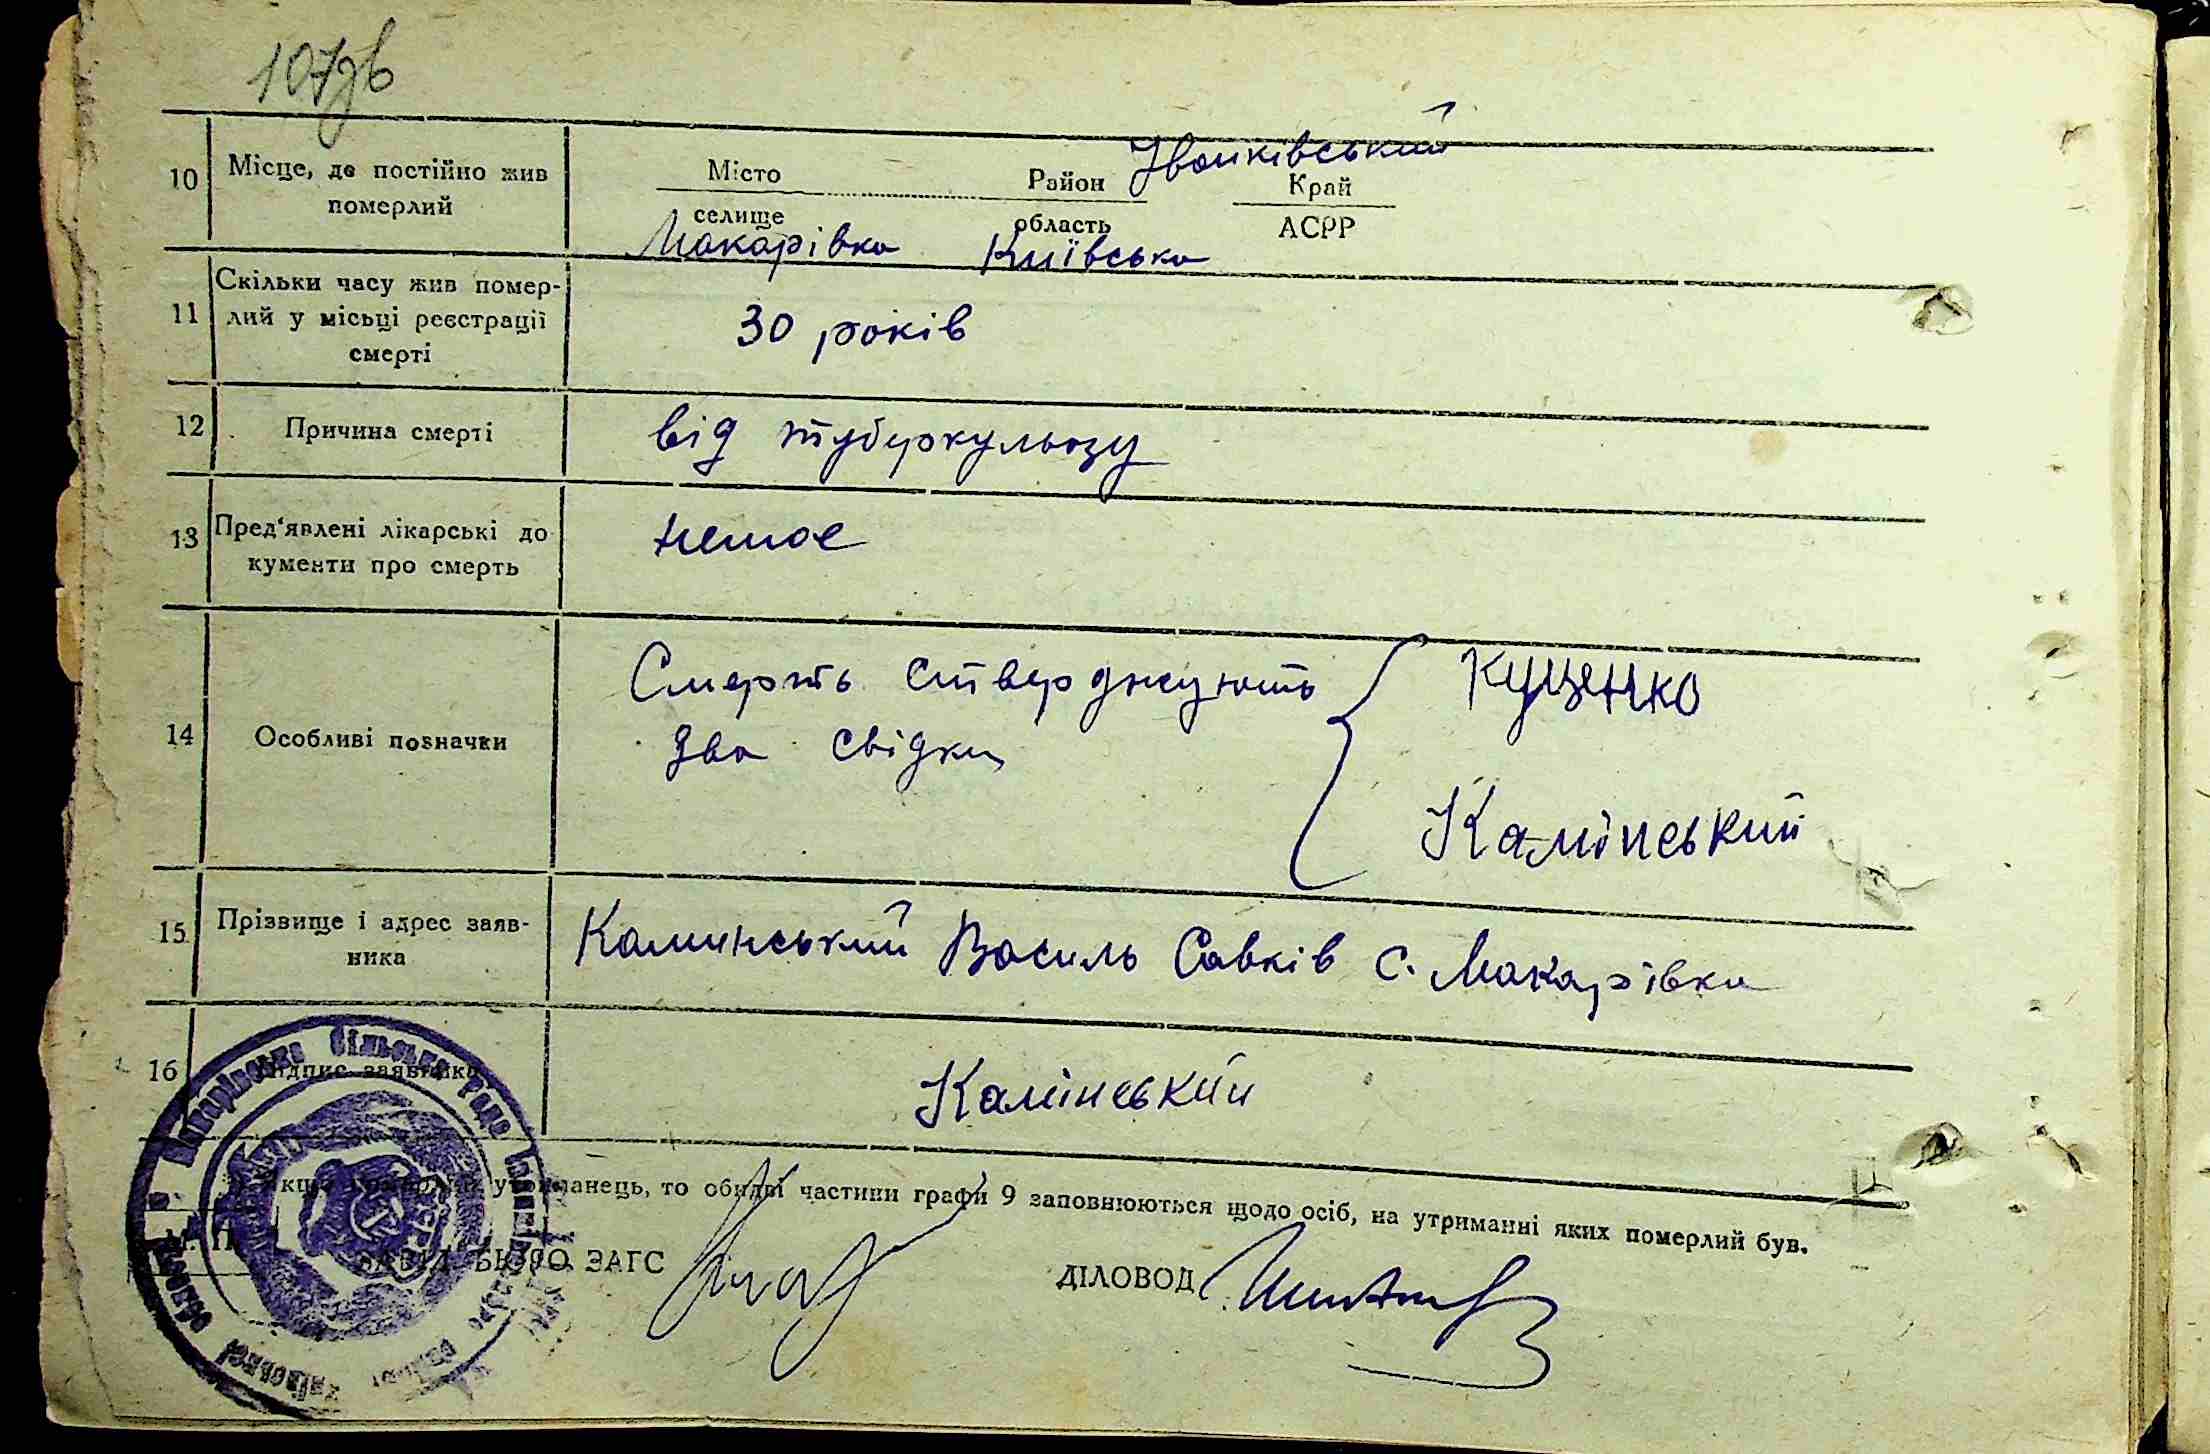 107зв
10 Місце, де постійно жив померлий
Місто Район Іванківський Край
селище область АСРР
Макарівка Київська
11 Скільки часу жив помер-
лий у місьці реєстрації
смерті
30 років
12 Причина смерті
від туберкульозу
13 Пред'явлені лікарські до
кументи про смерть
немає
14 Особливі позначки
Смерть стверджують Куценко
два свідки
Камінський
15 Прізвище і адрес заяв-
ника
Каминський Василь Савків с. Макарівка
16 Підпис заявника
Камінський
Якщо померлий утриманець, то обидві частини графи 9 заповнюються щодо осіб, на утриманні яких померлий був.
М. П.
ЗАВІД. БЮРО ЗАГС
ДІЛОВОД
Макарівська сільська рада